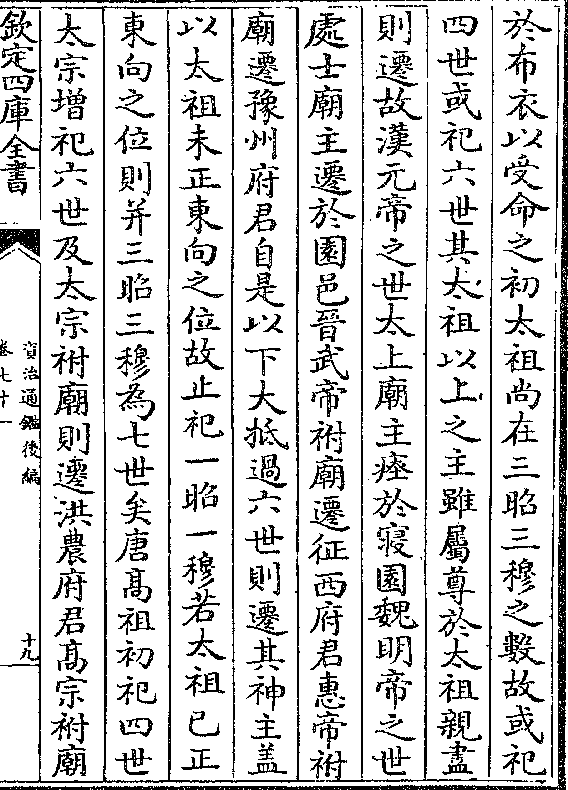 於布衣以受命之初太祖尚在三昭三穆之數故或祀
四世或祀六世其太祖以上之主雖屬尊於太祖親盡
則遷故漢元帝之世太上廟主瘞於寢園魏明帝之世
處士廟主遷於園邑晉武帝祔廟遷征西府君惠帝祔
廟遷豫州府君自是以下大抵過六世則遷其神主盖
以太祖未正東向之位故止祀一昭一穆若太祖已正
東向之位則并三昭三穆為七世矣唐髙祖初祀四世
太宗增祀六世及太宗祔廟則遷洪農府君髙宗祔廟
欽定四庫全書
資治通鑑後編
卷七十一
十九